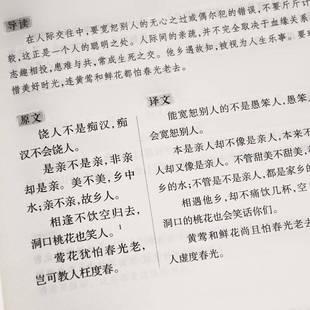 导读
在人际交往中，要宽恕别人的无心之过或偶尔犯的错误，不要斤斤计
较，这正是一个人的聪明之处。人际间的亲疏，并不完全取决于血缘关
志趣相投，患难与共，常成生死之交。他乡遇故知，被视为人生乐事。要
惜美好时光，连黄莺和鲜花都怕春光老去。
原文
饶人不是痴汉，痴
汉不会饶人。
是亲不是亲，非亲
却是亲。美不美，乡中
水；亲不亲，故乡人。
相逢不饮空归去，
洞口桃花也笑人。
莺花犹怕春光老，
岂可教人枉度春。
译文
能宽恕别人的不是愚笨人，愚笨
会宽恕别人。
本是亲人却不像是亲人，本来不
人却又像是亲人。不管甜美不甜美，
乡的水；不管是不是亲人，都是家乡的
相遇他乡，却不痛饮几杯，空
洞口的桃花也会笑话你们。
黄莺和鲜花尚且怕春光老去
人虚度春光。